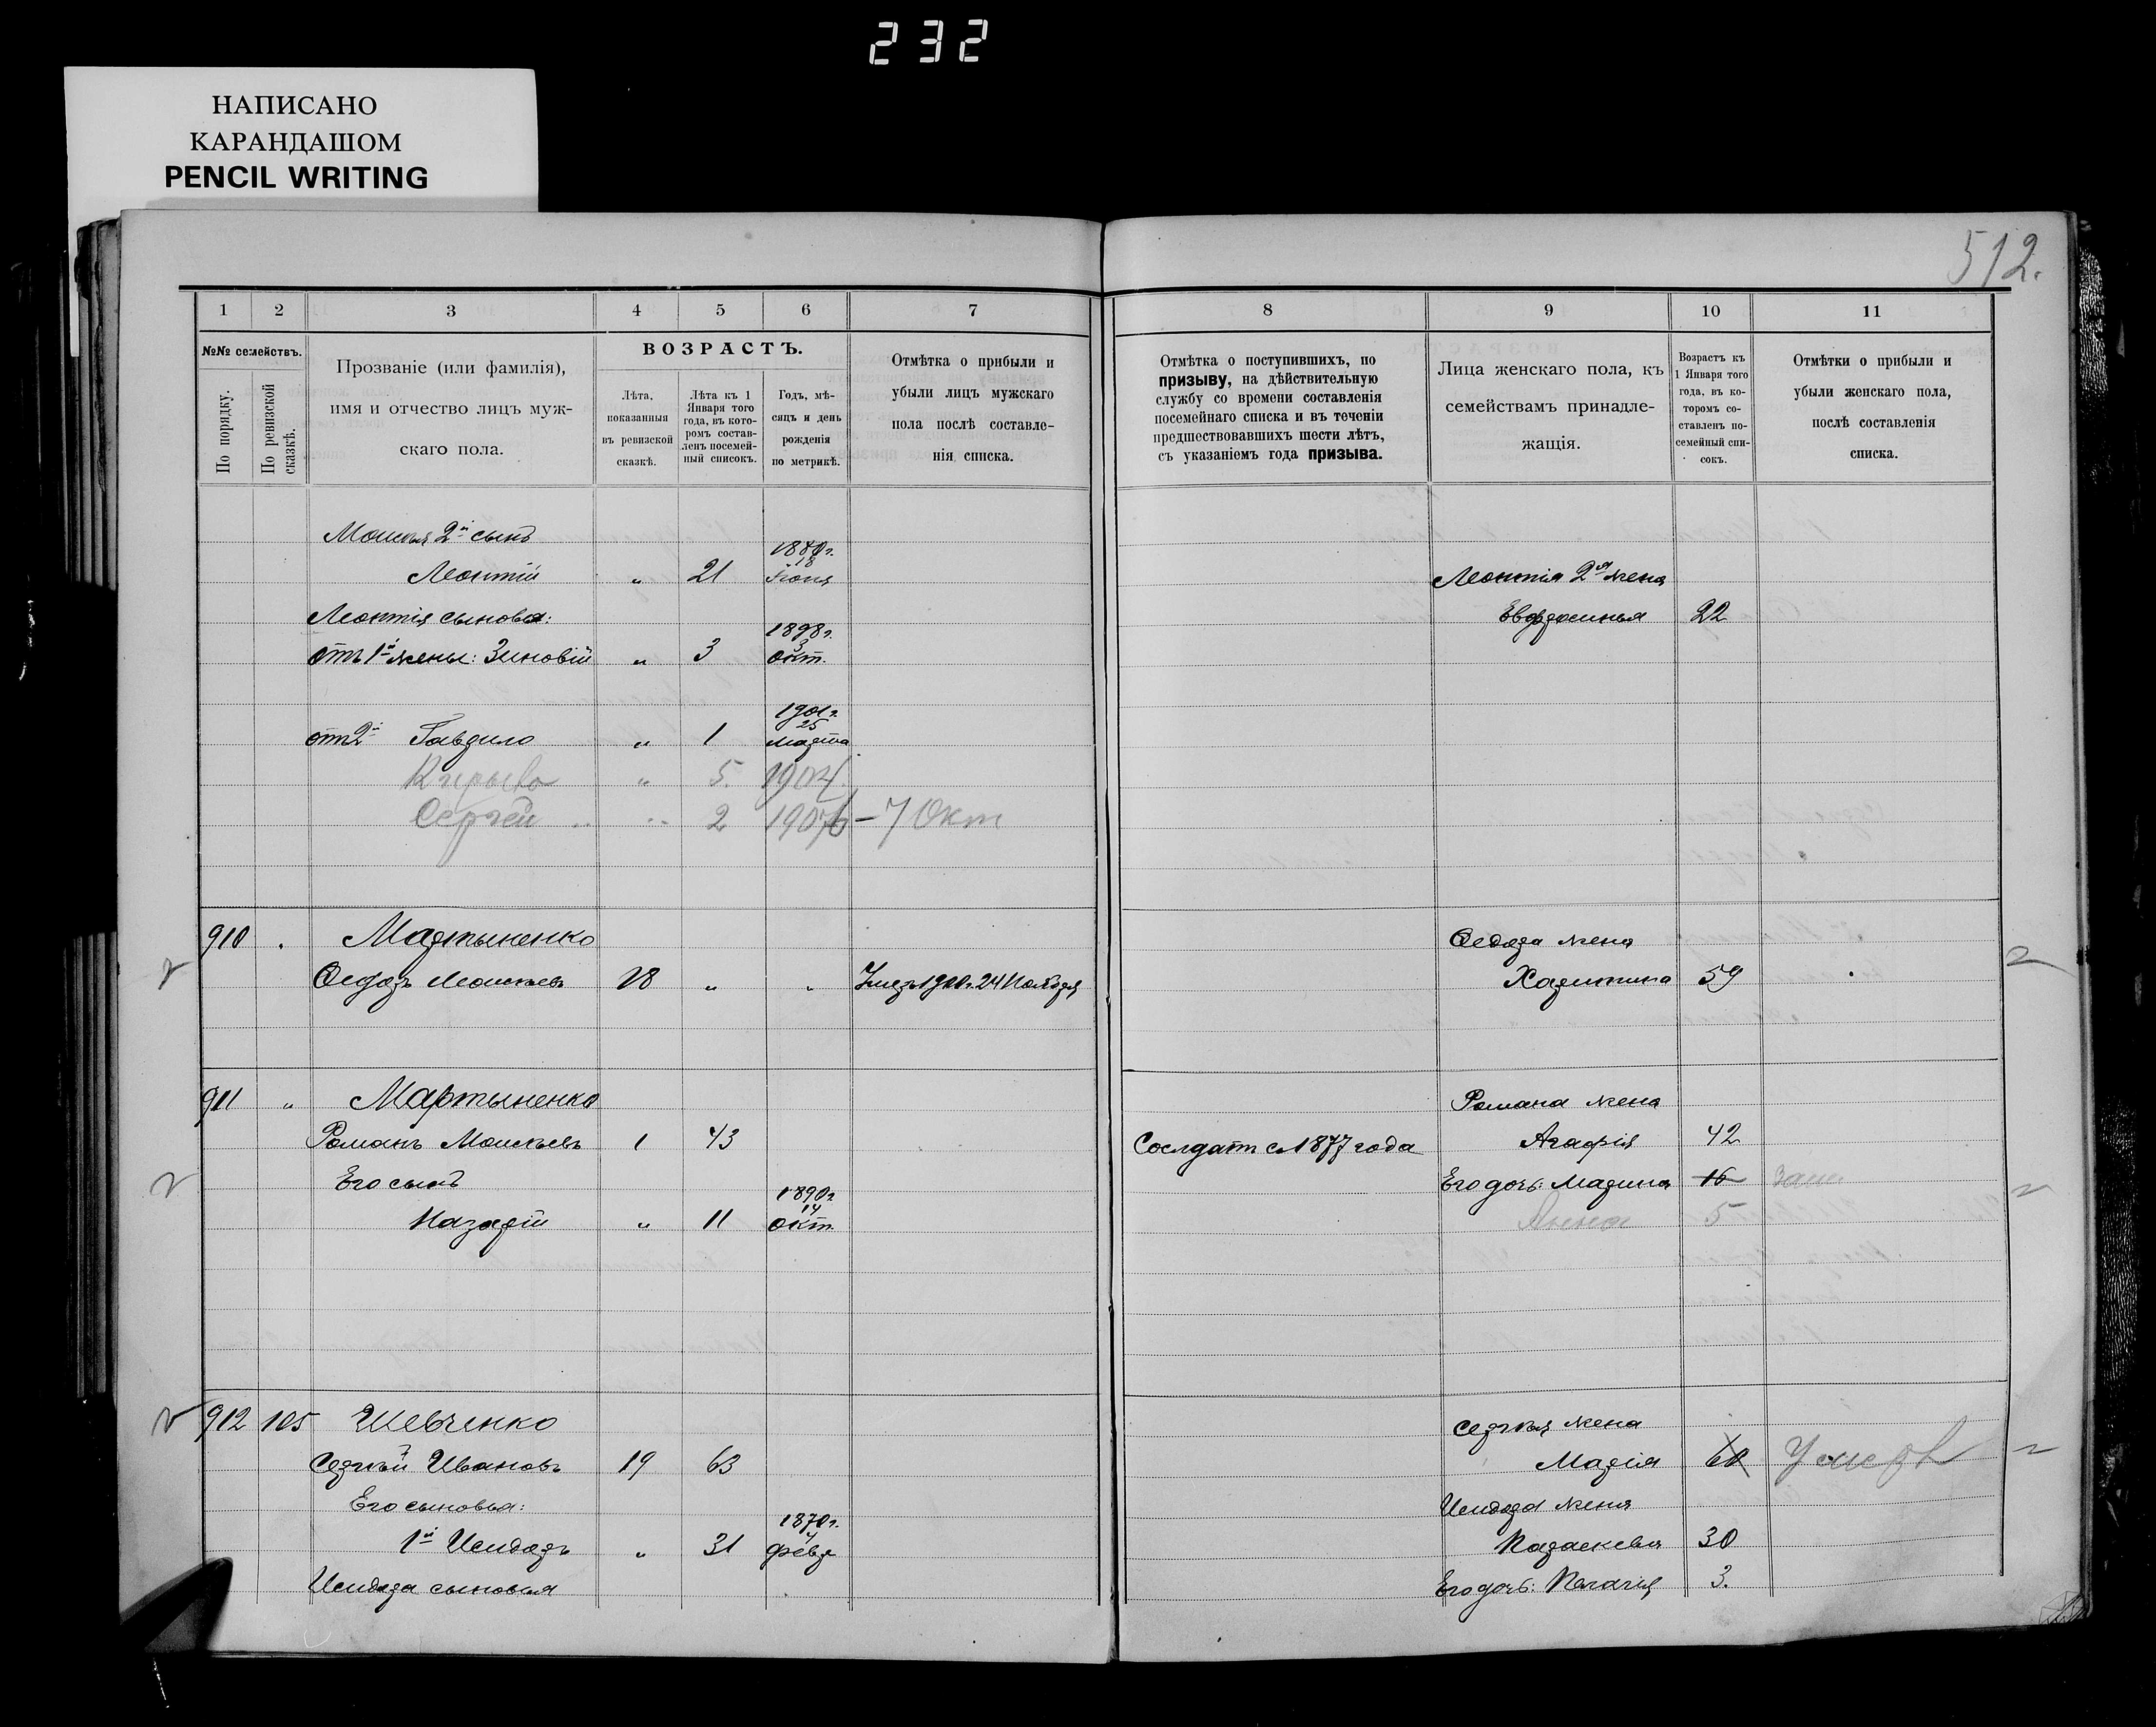 232
НАПИСАНО
КАРАНДАШОМ
PENCIL WRITING
512.
1 2 3 4 5 6 7
№№ семействъ.
По порядку.
По ревизской сказкѣ.
Прозваніе (или фамилія),
имя и отчество лицъ муж-
скаго пола.
ВОЗРАСТЪ.
Лѣта,
показанныя
въ ревизской
сказкѣ.
Лѣта къ 1
Января того
года, въ кото-
ромъ состав-
ленъ посемей-
ный списокъ.
Годъ, мѣ-
сяцъ и день
рожденія
по метрикѣ.
Отмѣтка о прибыли и
убыли лицъ мужскаго
пола послѣ составле-
нія списка.
8 9 10 11
Отмѣтка о поступившихъ, по
призыву, на дѣйствительную
службу со времени составленія
посемейнаго списка и въ теченіи
предшествовавшихъ шести лѣтъ,
съ указаніемъ года призыва.
Лица женскаго пола, къ
семействамъ принадле-
жащія.
Возрастъ къ
1 Января того
года, въ ко-
торомъ со-
ставленъ по-
семейный спи-
сокъ.
Отмѣтки о прибыли и
убыли женскаго пола,
послѣ составленія
списка.
Моисея 2й сынъ
Леонтій " 21 1880г. 18 Іюня
Леонтія сыновья:
отъ 1й жены: Зиновій " 3 1898г. 3 Окт.
от 2й Гаврило " 1 1901г. 25 Марта
Кирыло " 5. 1904
Сергей " 2 1907 – 7 Окт
Леонтія 2я жена
Евфросинья 22
910 Мартыненко
Федоръ Моисеевъ 28 " " Умеръ 1900г. 24 Ноября
Федора жена
Харитина 59
911 " Мартыненко
Романъ Моисеевъ 1 43
Его сынъ
Назарій " 11 1890г 14 Окт.
Солдатъ с 1877 года
Романа жена
Агафія 42
Его дочь: Марина 16
Анна 5
912 105 Шевченко
Сергѣй Ивановъ 19 63
Его сыновья:
1й Исидоръ " 31 1870г. февр
Исидора сыновья
Сергѣя жена
Марія 60 Умерл
Исидора жена
Параскева 30
Его дочь: Пелагія 3.